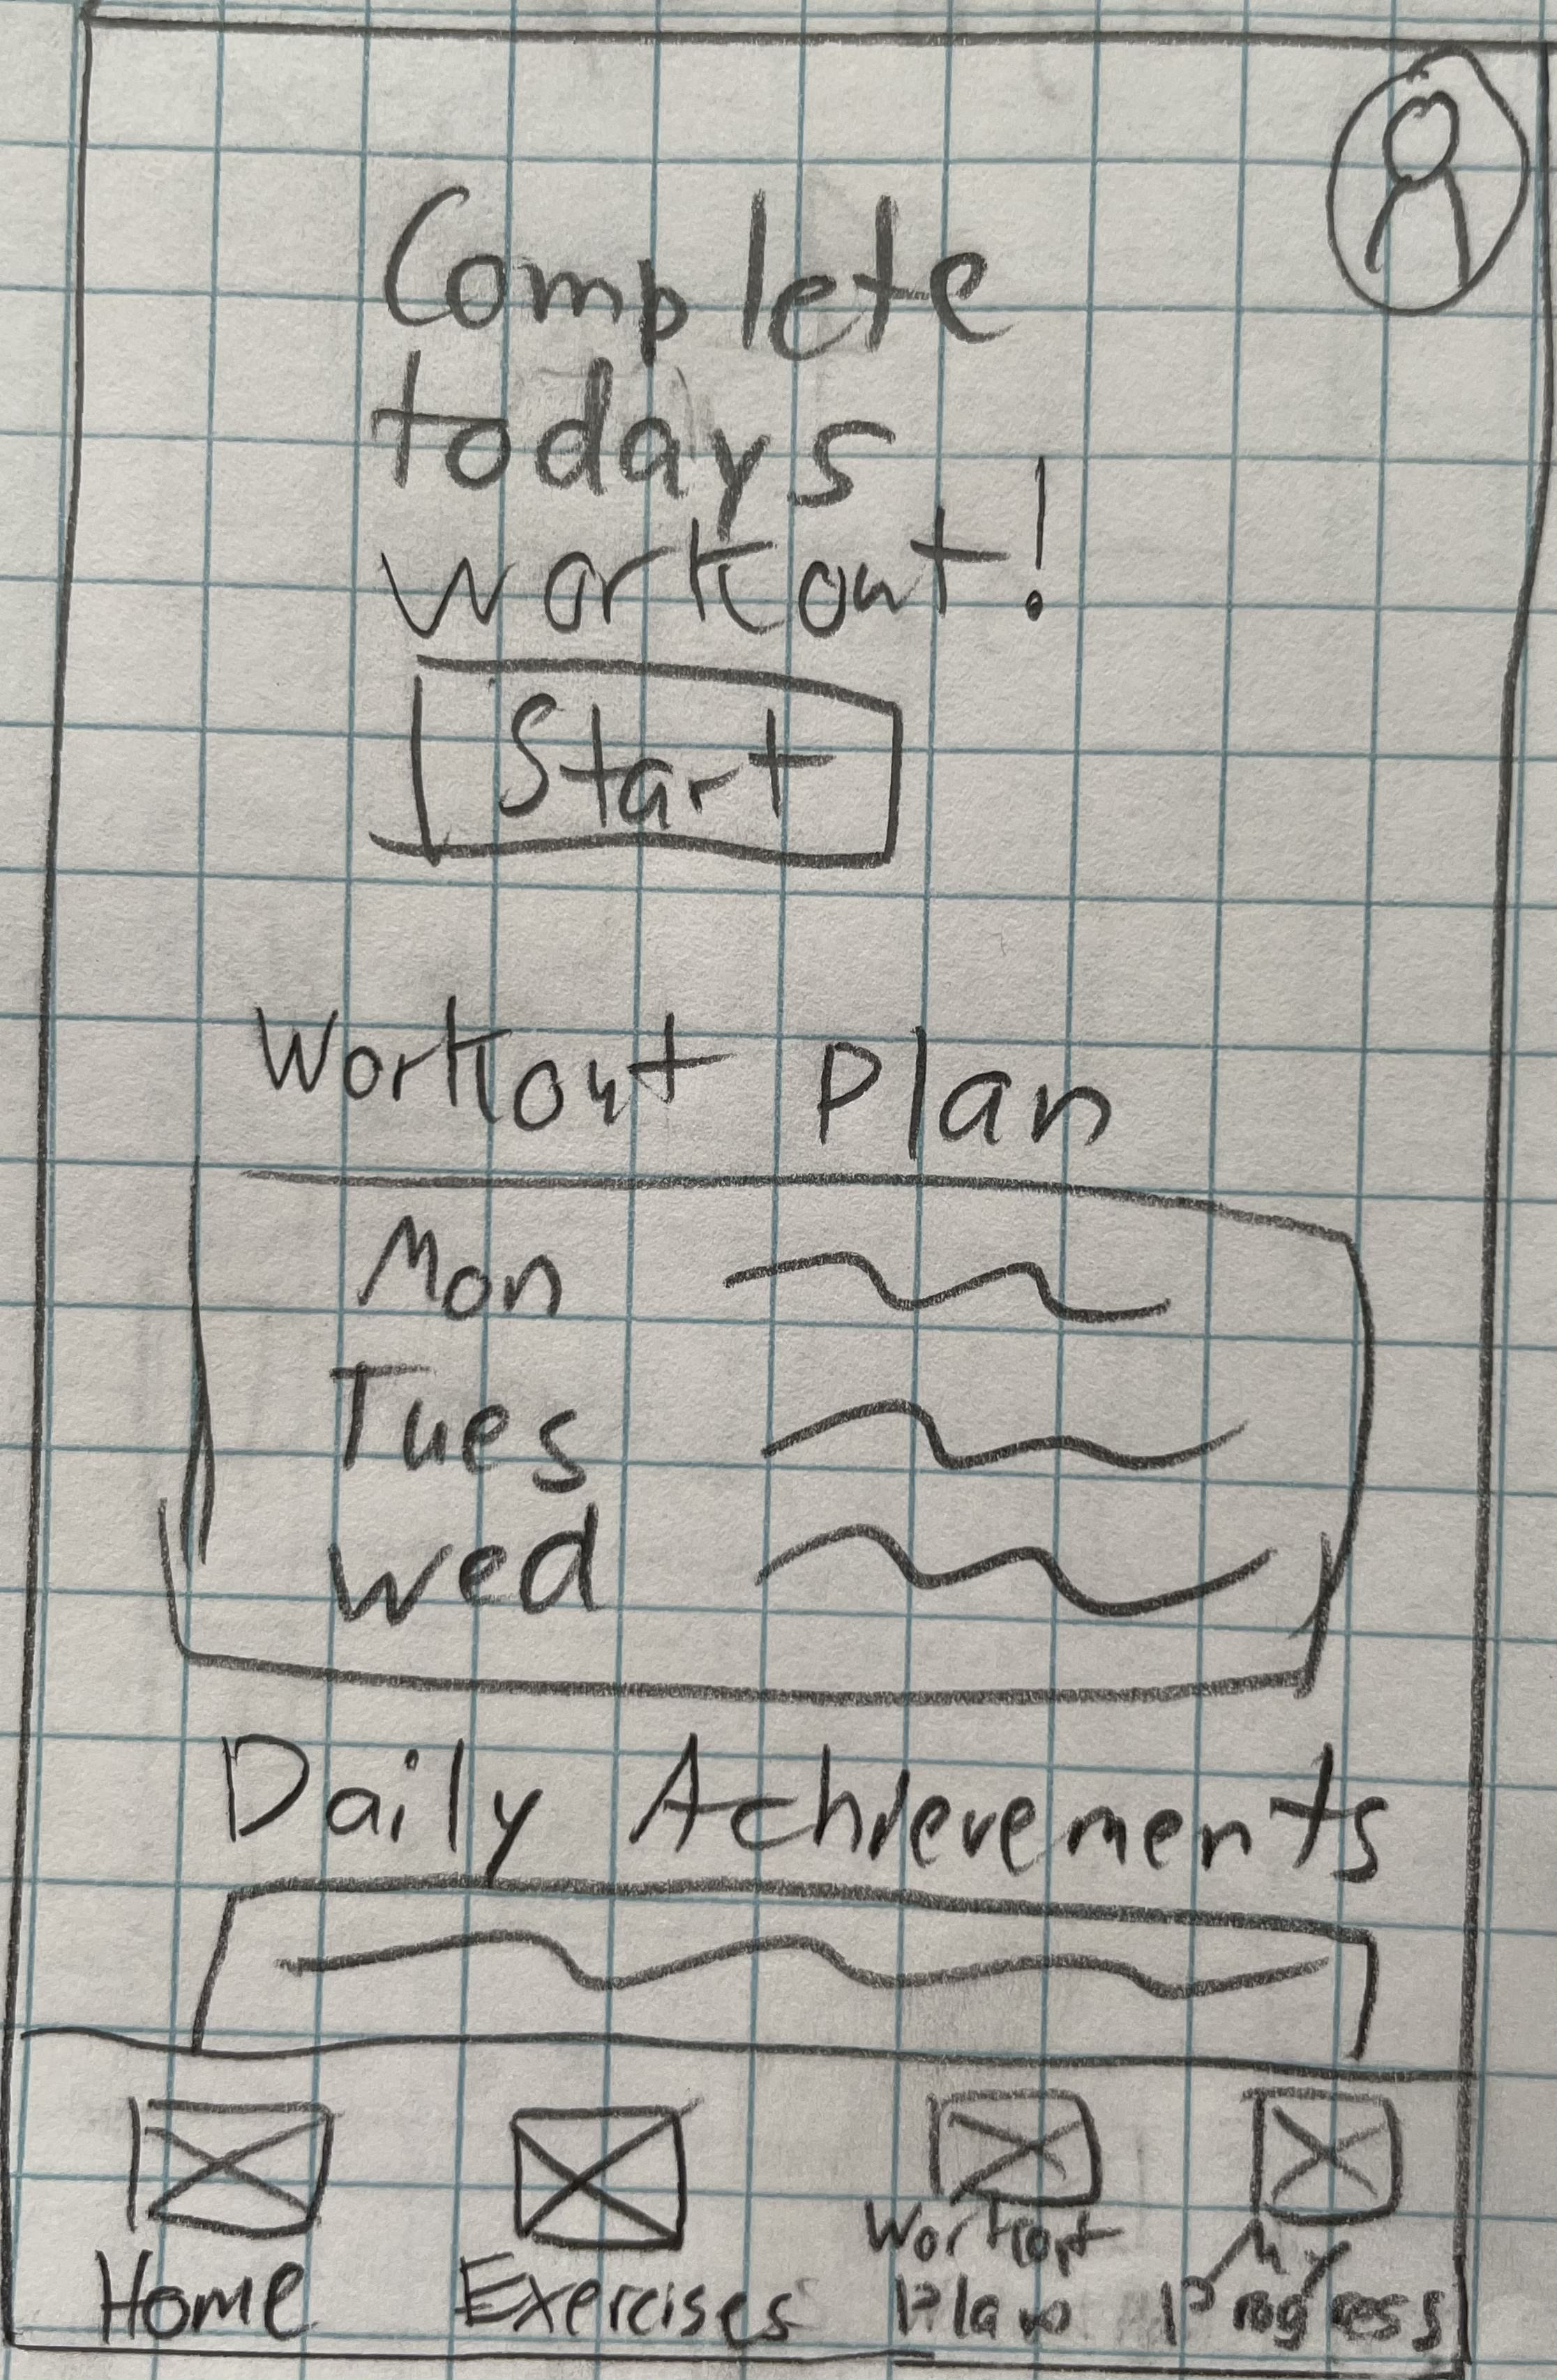 Complete
todays
workout!
Start
Workout Plan
Mon
Tues
Wed
Daily Achievements
Home
Exercises
Workout
Plan
My
Progress